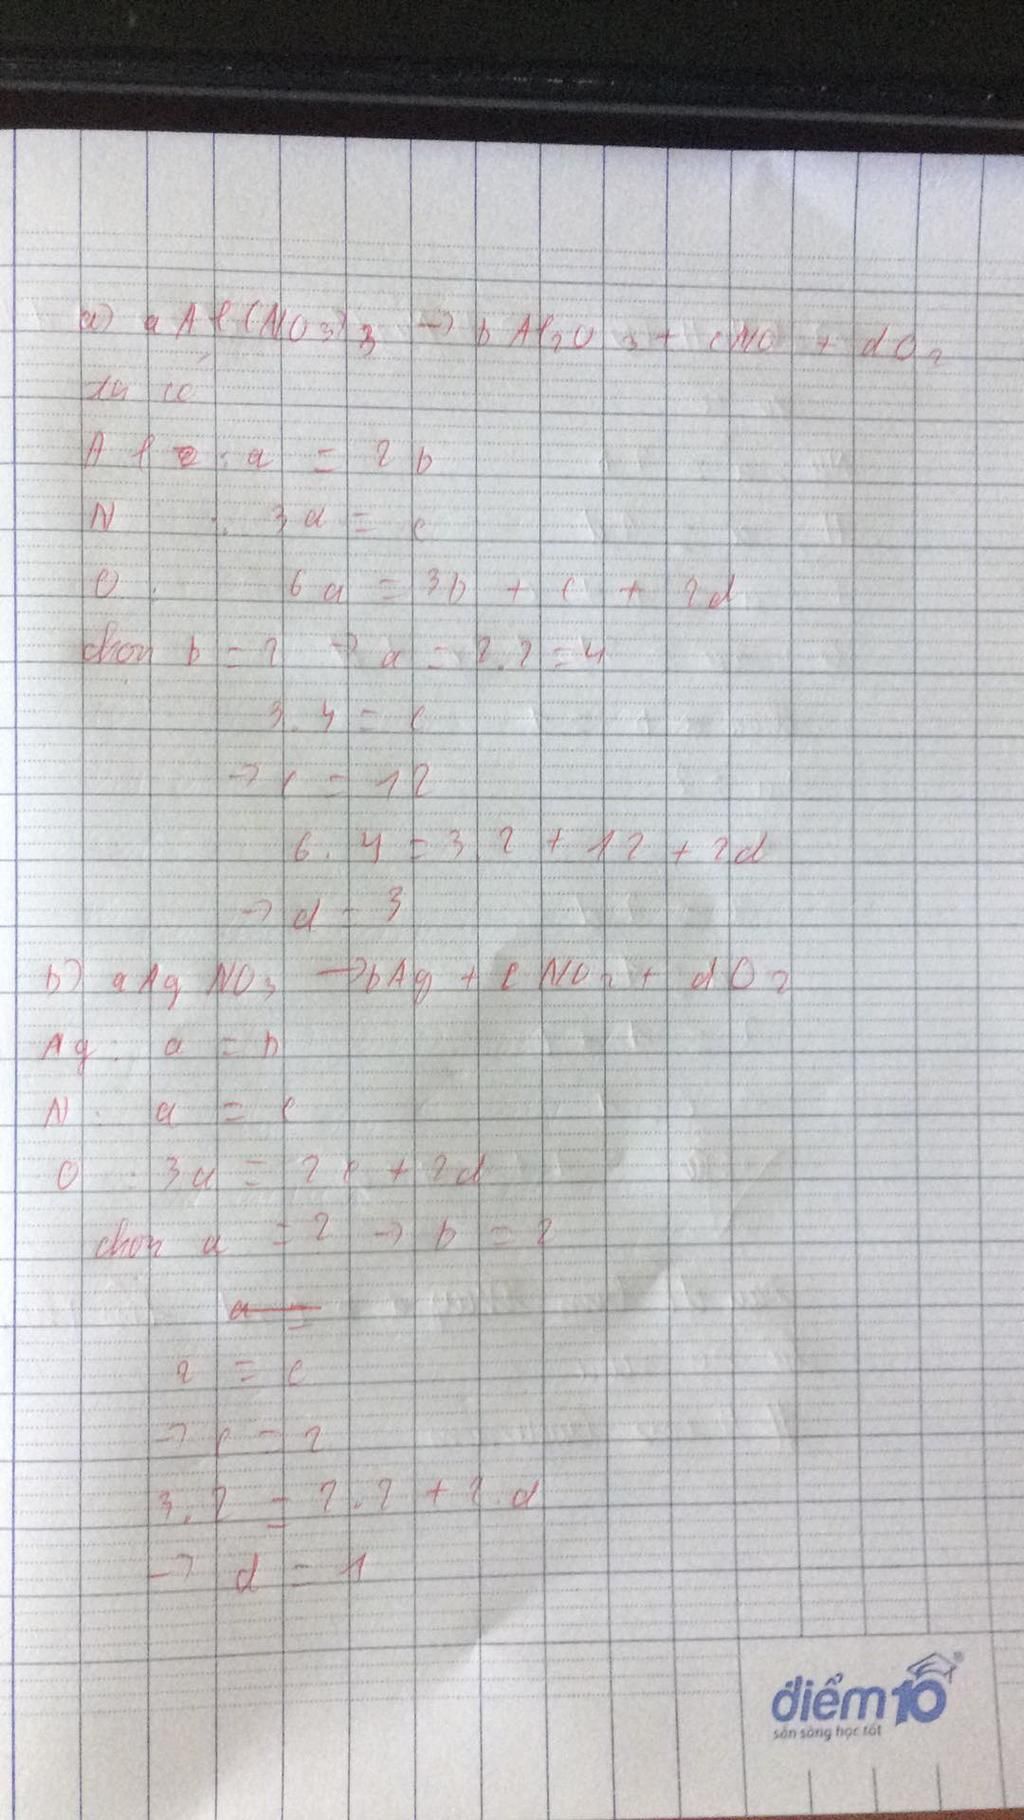 a) a Al(NO3)3 → b Al2O3 + cNO + dO2
ta có
Al : a = 2b
N : 3a = c
O : 6a = 3b + c + 2d
chọn b = 2 → a = 2.2 = 4
3.4 = c
→ c = 12
6.4 = 3.2 + 12 + 2d
→ d = 3
b) a AgNO3 → bAg + cNO2 + dO2
Ag : a = b
N : a = c
O : 3a = 2c + 2d
chọn a = 2 → b = 2
a =
2 = c
→ c = 2
3.2 = 2.2 + 2.d
→ d = 1
điểm10
sẵn sàng học tốt